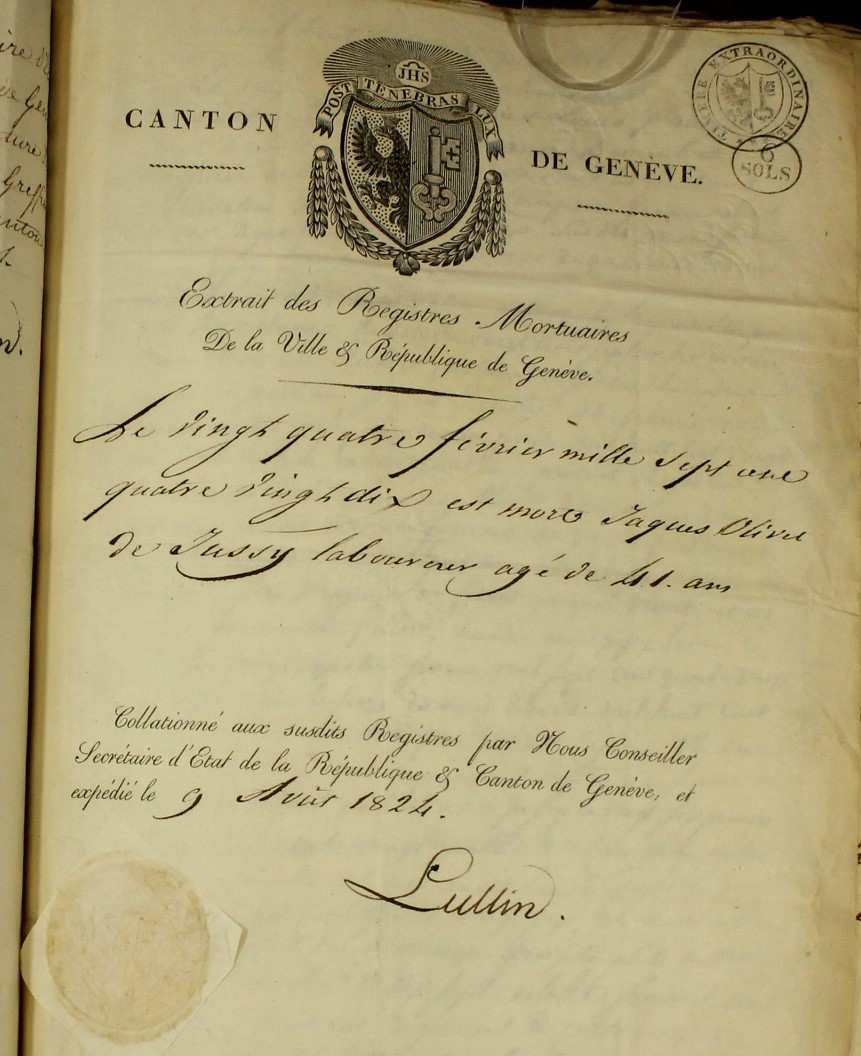 JHS
POST TENEBRAS LUX
CANTON
DE GENÈVE.
TIMBRE EXTRAORDINAIRE
6
SOLS
Extrait des Registres Mortuaires
De la Ville & République de Genève.
Le vingt quatre février mille sept cent
quatre vingt dix est mort Jaques Olivet
de Jussy laboureur agé de 41. ans
Collationné aux susdits Registres par Nous Conseiller
Secrétaire d'Etat de la République & Canton de Genève, et
expédié le 9 Août 1824.
Lullin.